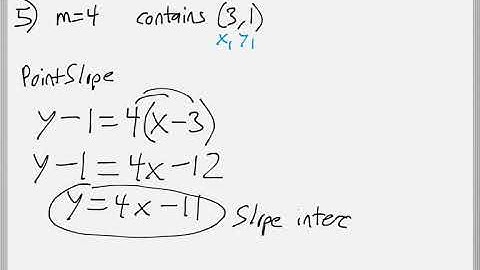 5) m=4 contains (3,1)
x₁ y₁
Point Slope
y-1=4(x-3)
y-1=4x-12
y=4x-11 Slope interc